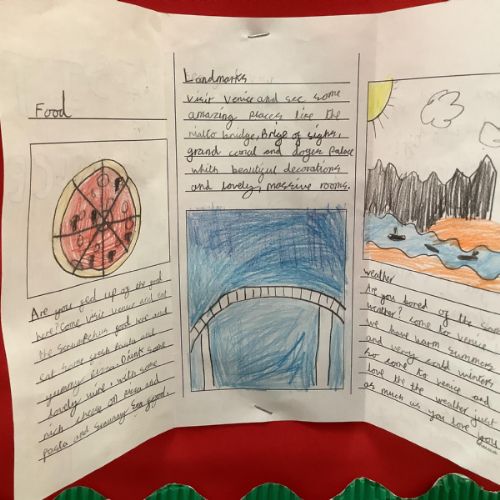 Food
Are you fed up of the food
here? Come visit venice and eat
the food here and
eat some fresh pasta and
yummy pizza. Drink some
lovely wine with some
nich cheese on pizza and
pasta and yummy sea food.
Landmarks
visit Venice and see some
amazing places like the
rialto bridge, Brige of sighs,
grand canal and doges Palace
which beautiful decorations
and lovely, massive rooms.
weather
Are you bored of the same
weather? come to venice
we have warm summers
and very could winters,
so come to venice and
love the the weather just
as much as you love your